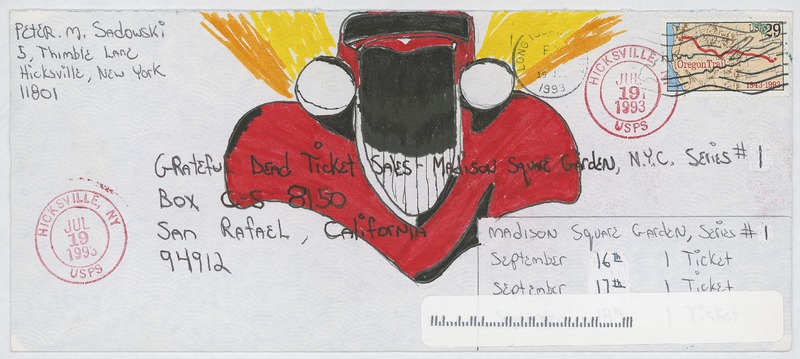 Peter. M. Sadowski
5, Thimble Lane
Hicksville, New York
11801
LONG ISLAND
1993
HICKSVILLE, NY
JUL
19
1993
USPS
29
Oregon Trail
1843-1993
Grateful Dead Ticket Sales - Madison Square Garden, N.Y.C. Series # 1
Box C-S 8150
San Rafael, California
94912
HICKSVILLE, NY
JUL
19
1993
USPS
Madison Square Garden, Series # 1
September 16th 1 Ticket
September 17th 1 Ticket
1 Ticket